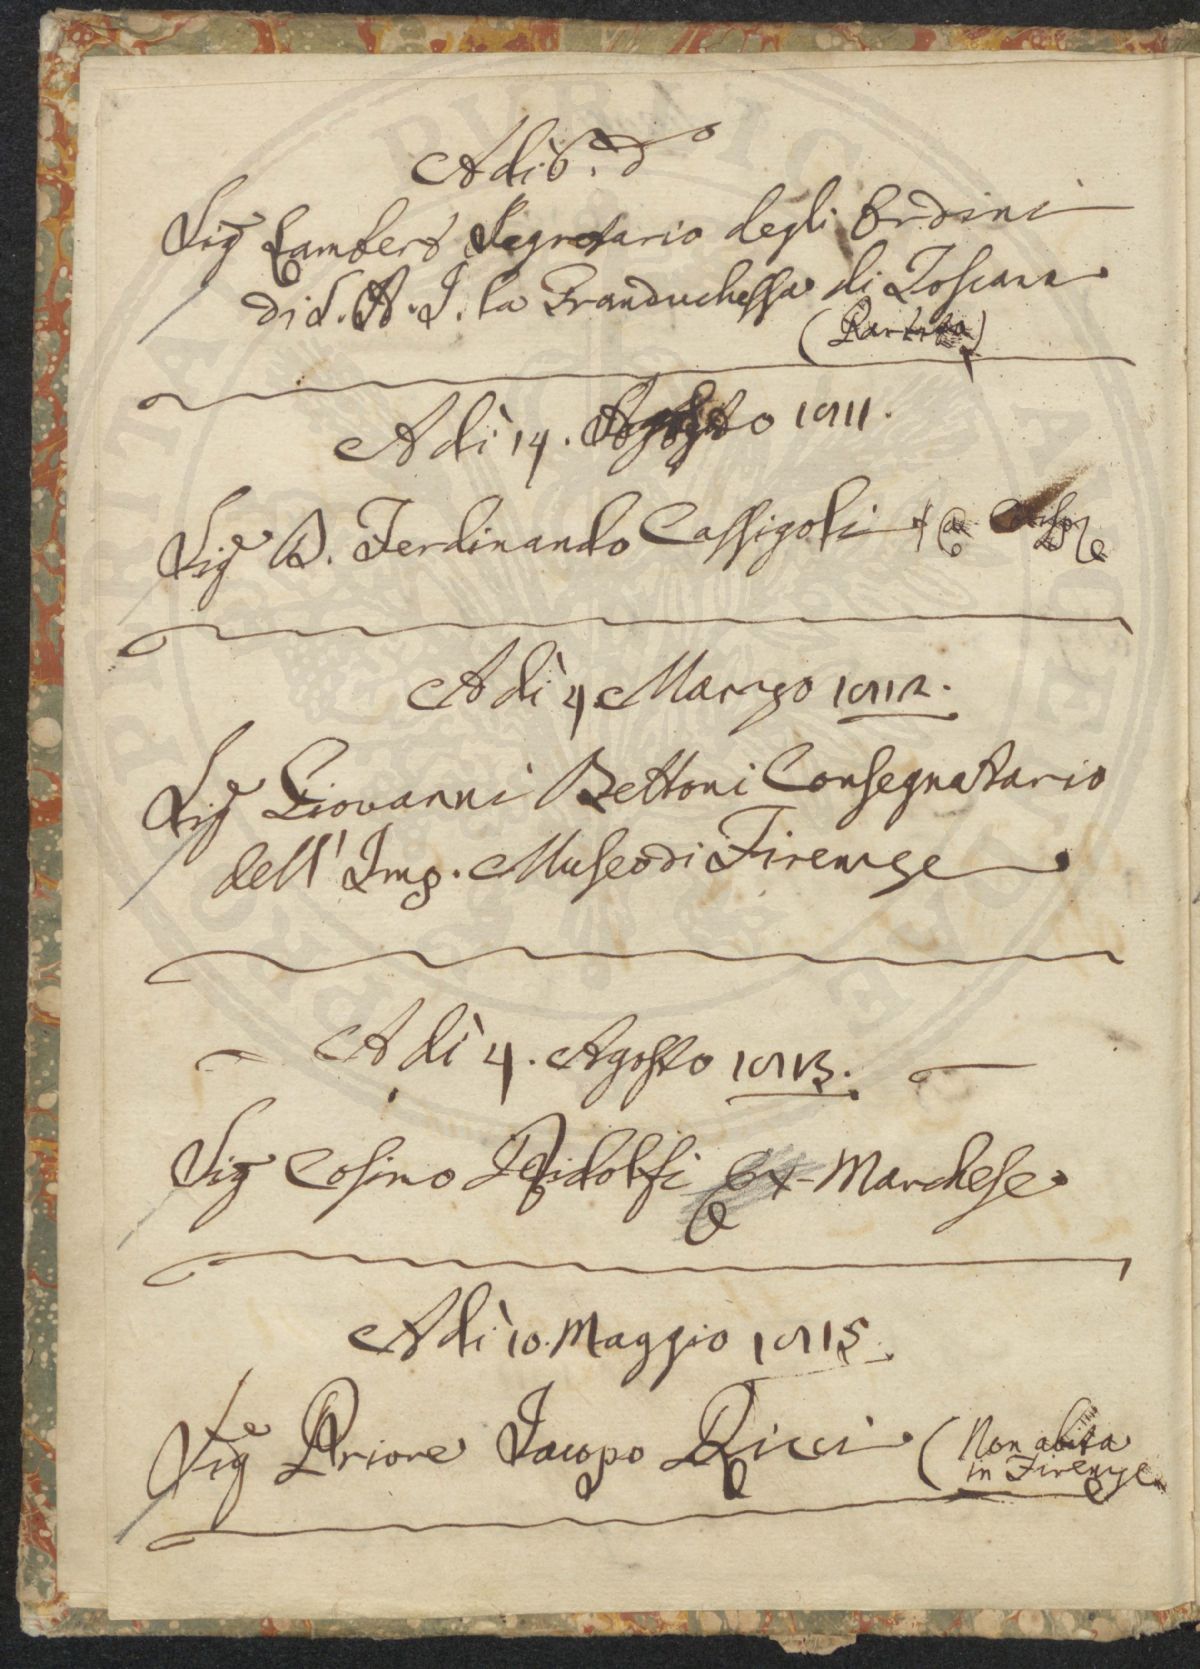 Adì 6. d.o
Sig.e Lambert Segretario degli Ordini
di S. A. I. la Granduchessa di Toscana
(Partito)
Adì 14. Agosto 1811.
Sig.e D. Ferdinando Cassigoli
Adì 4 Marzo 1812.
Sig.e Giovanni Bettoni Consegnatario
dell' Imp. Museo di Firenze
Adì 4. Agosto 1813.
Sig.e Cosimo Ridolfi Ex-Marchese
Adì 10. Maggio 1815.
Sig.e Priore Jacopo Ricci (Non abita
in Firenze